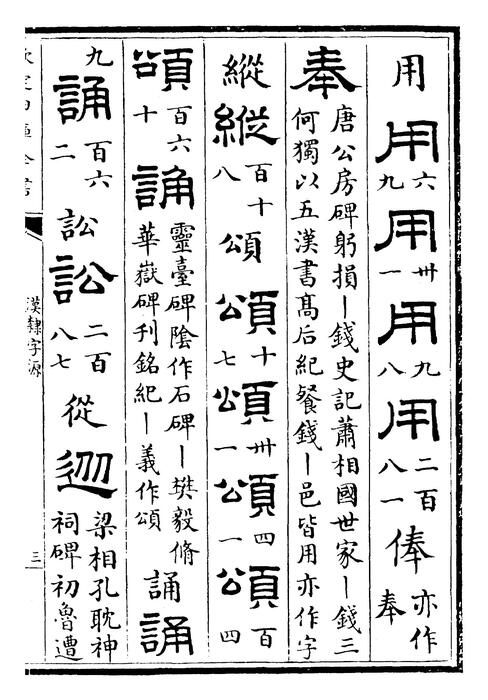 用用六九用卅一用九八用二百八一俸亦作奉
奉唐公房碑躬損丨錢史記蕭相國世家丨錢三何獨以五漢書高后紀餐錢丨邑皆用亦作字
縱縱百十八頌頌十七頌卅一頌四一頌百四
頌百六十誦靈臺碑陰作石碑丨樊毅脩華嶽碑刊銘紀丨義作頌誦誦
九誦百六二訟訟二百八七從梁相孔耽神祠碑初魯遭
欽定四庫全書
漢隸字源
三